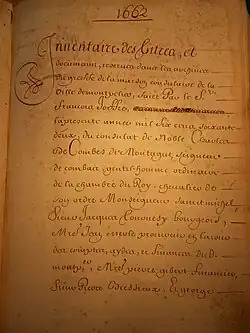 1662
Inventaire des Titres, et
documans, reservés dans les archives
du greffe de la maison consulaire de la
ville de montpelier, faict Par le Sr
Francois Joffre
la presente année mil six cens soixante
deux, du consulat de Noble Charles
De Combes de Montagut, seigneur
de combas, gentilhomme ordinaire
de la chambre du Roy, chevalier de
son ordre Monseigneur sainct michel,
Sieur Jacques bourgeois,
en la cour
des comptes, aydes, et finances de
montp. Mre pierre gibert
Sieur Pierre george